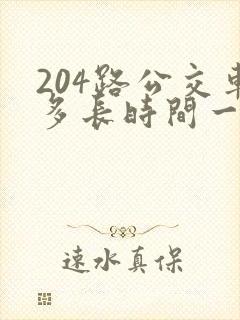 204路公交車
多長時間一
速水真保